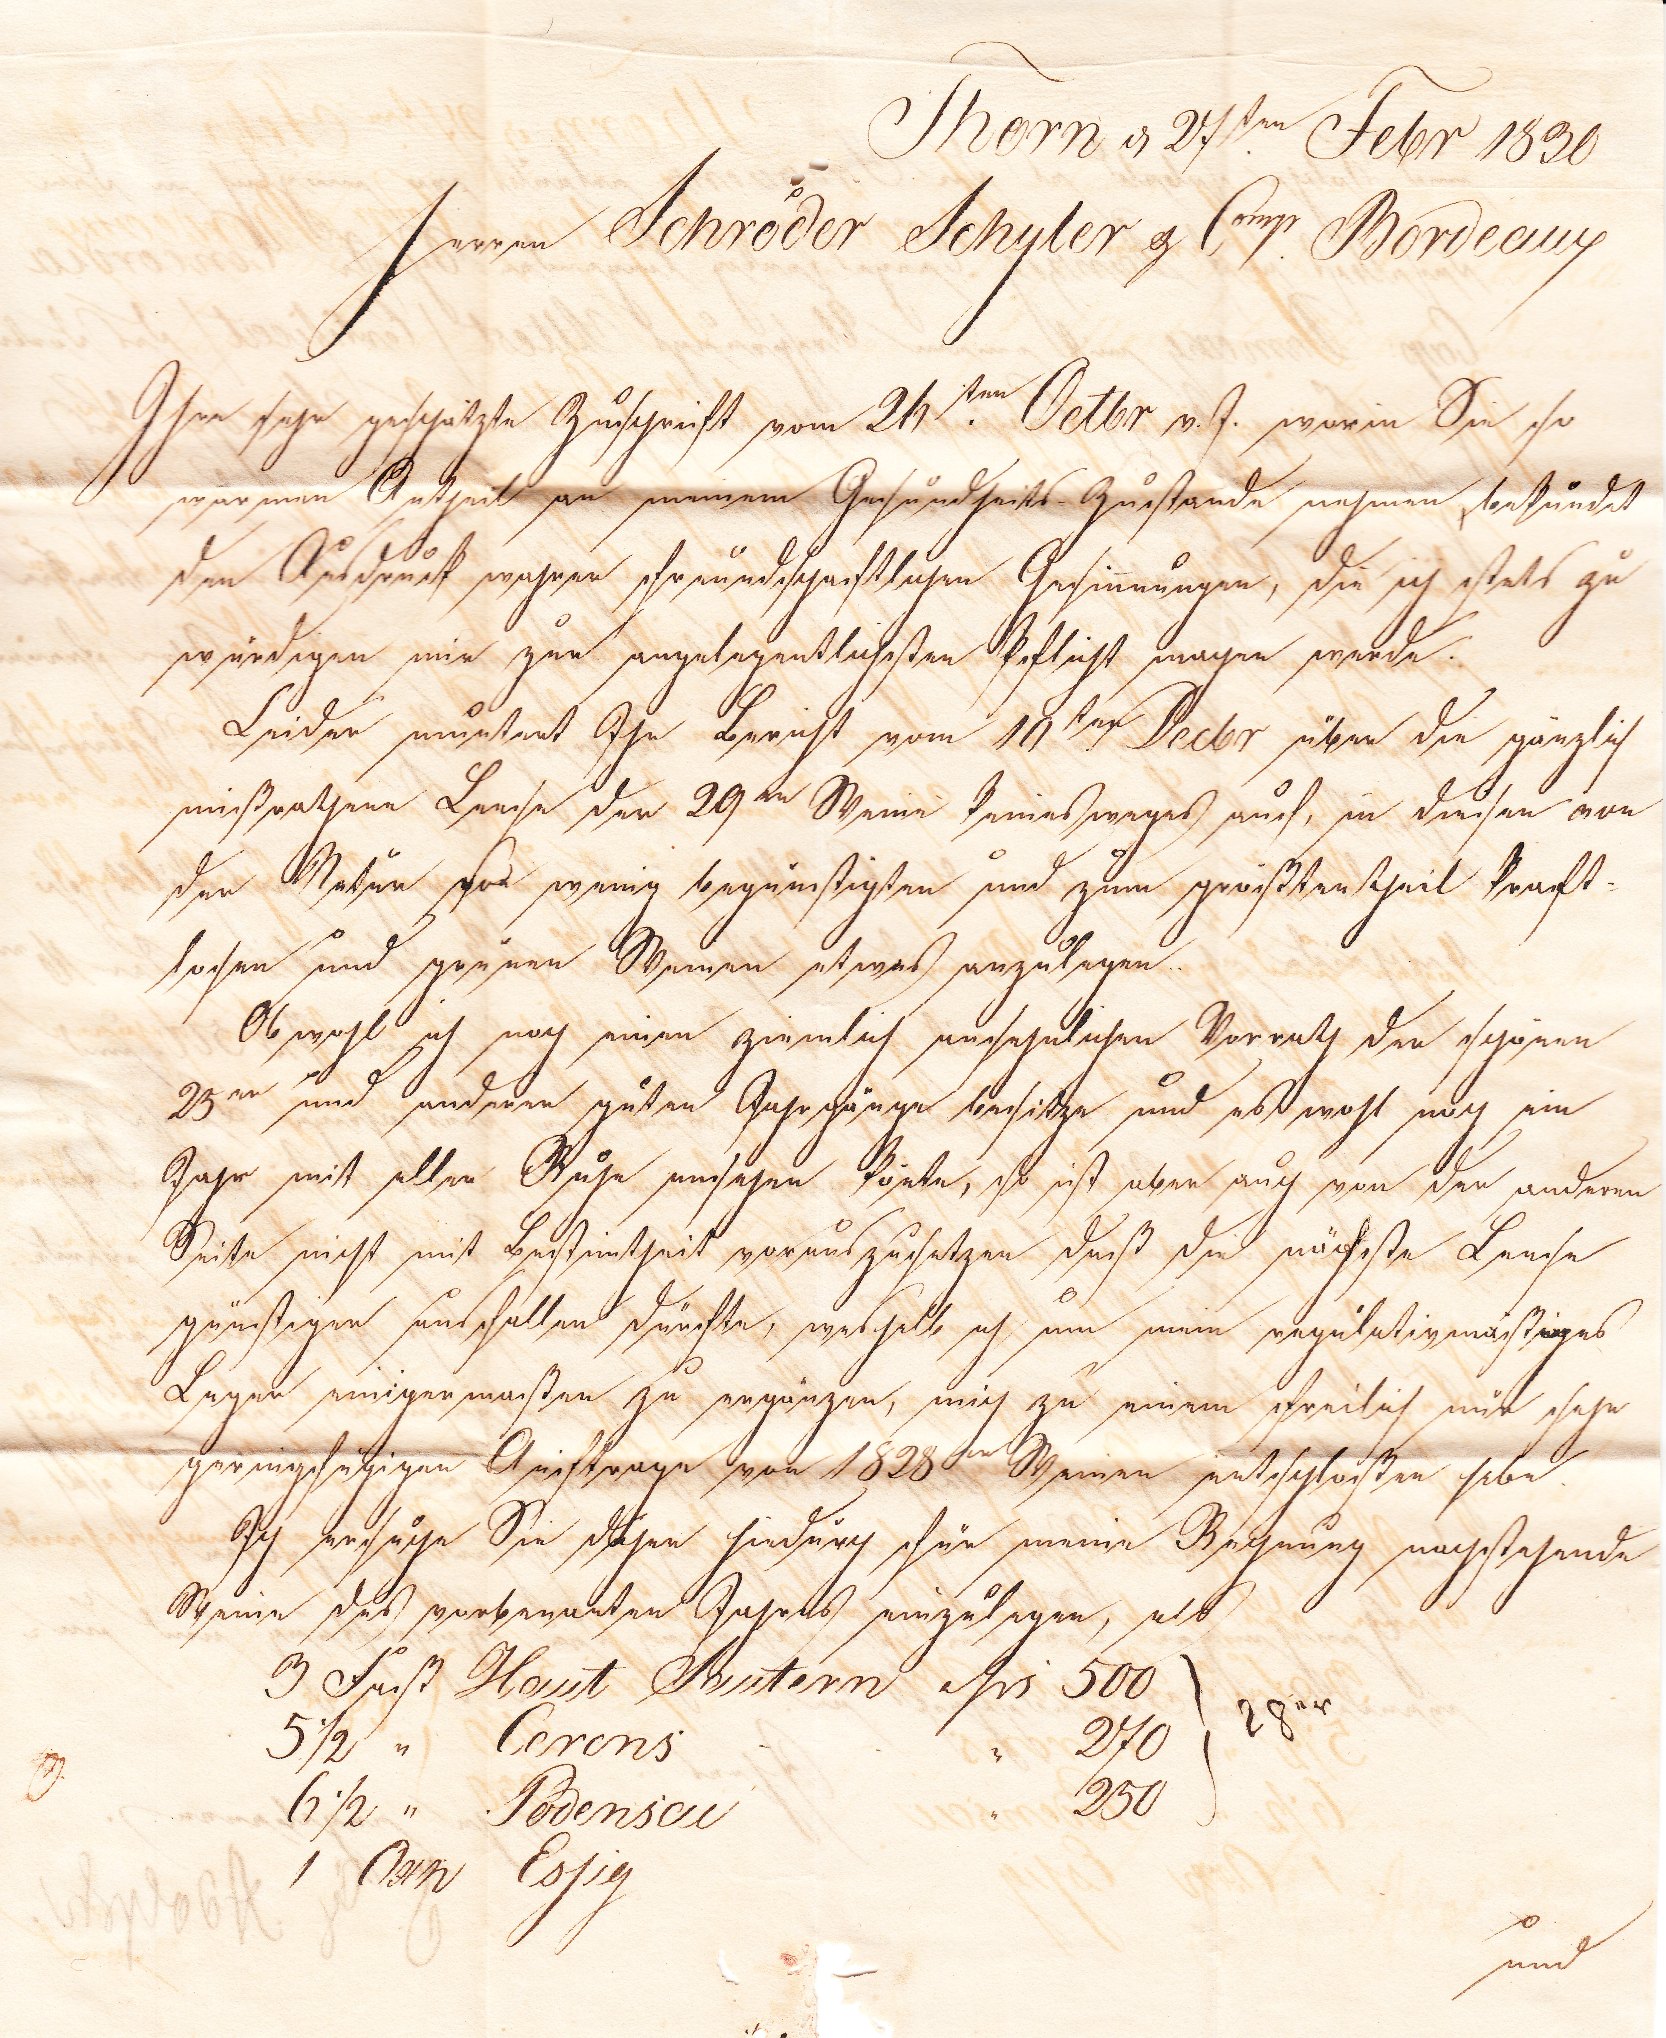 Thorn d 27ten Febr 1830
Herren Schröder Schyler & Comp. Bordeaux
Ihre sehr geschätzte Zuschrift vom 24ten Octbr v. J. worin Sie so
warmen Antheil an meinem Gesundheits-Zustande nehmen, bekundet
den Ausdruck wahrer freundschaftlichen Gesinnungen, die ich stets zu
würdigen mir zur angelegentlichsten Pflicht machen werde.
Leider muntert Ihr Bericht vom 10ten Decbr über die gänzlich
mißrathene Lese der 29er Weine keinesweges auf, in diesen von
der Natur so wenig begünstigten und zum größtentheil kraft-
losen und grünen Weinen etwas anzulegen.
Obwohl ich noch einen ziemlich ansehnlichen Vorrath der schönen
25er und anderer guten Jahrgänge besitze und es wohl noch ein
Jahr mit aller Ruhe ansehen könte, so ist aber auch von der anderen
Seite nicht mit Bestimtheit vorauszusetzen daß die nächste Lese
günstiger ausfallen dürfte, weshalb ich um mein regulativmäßiges
Lager einigermaßen zu ergänzen, mich zu einem freilich nur sehr
geringfügigen Auftrage von 1828er Weinen entschloßen habe.
Ich ersuche Sie daher hiedurch für meine Rechnung nachstehende
Weine des vorbenanten Jahres einzulegen, als
3 Faß Haut Sautern a frs 500
5 1/2 " Cerons " 270
28er
6 1/2 " Podensac " 250
1 Oxh Essig
und